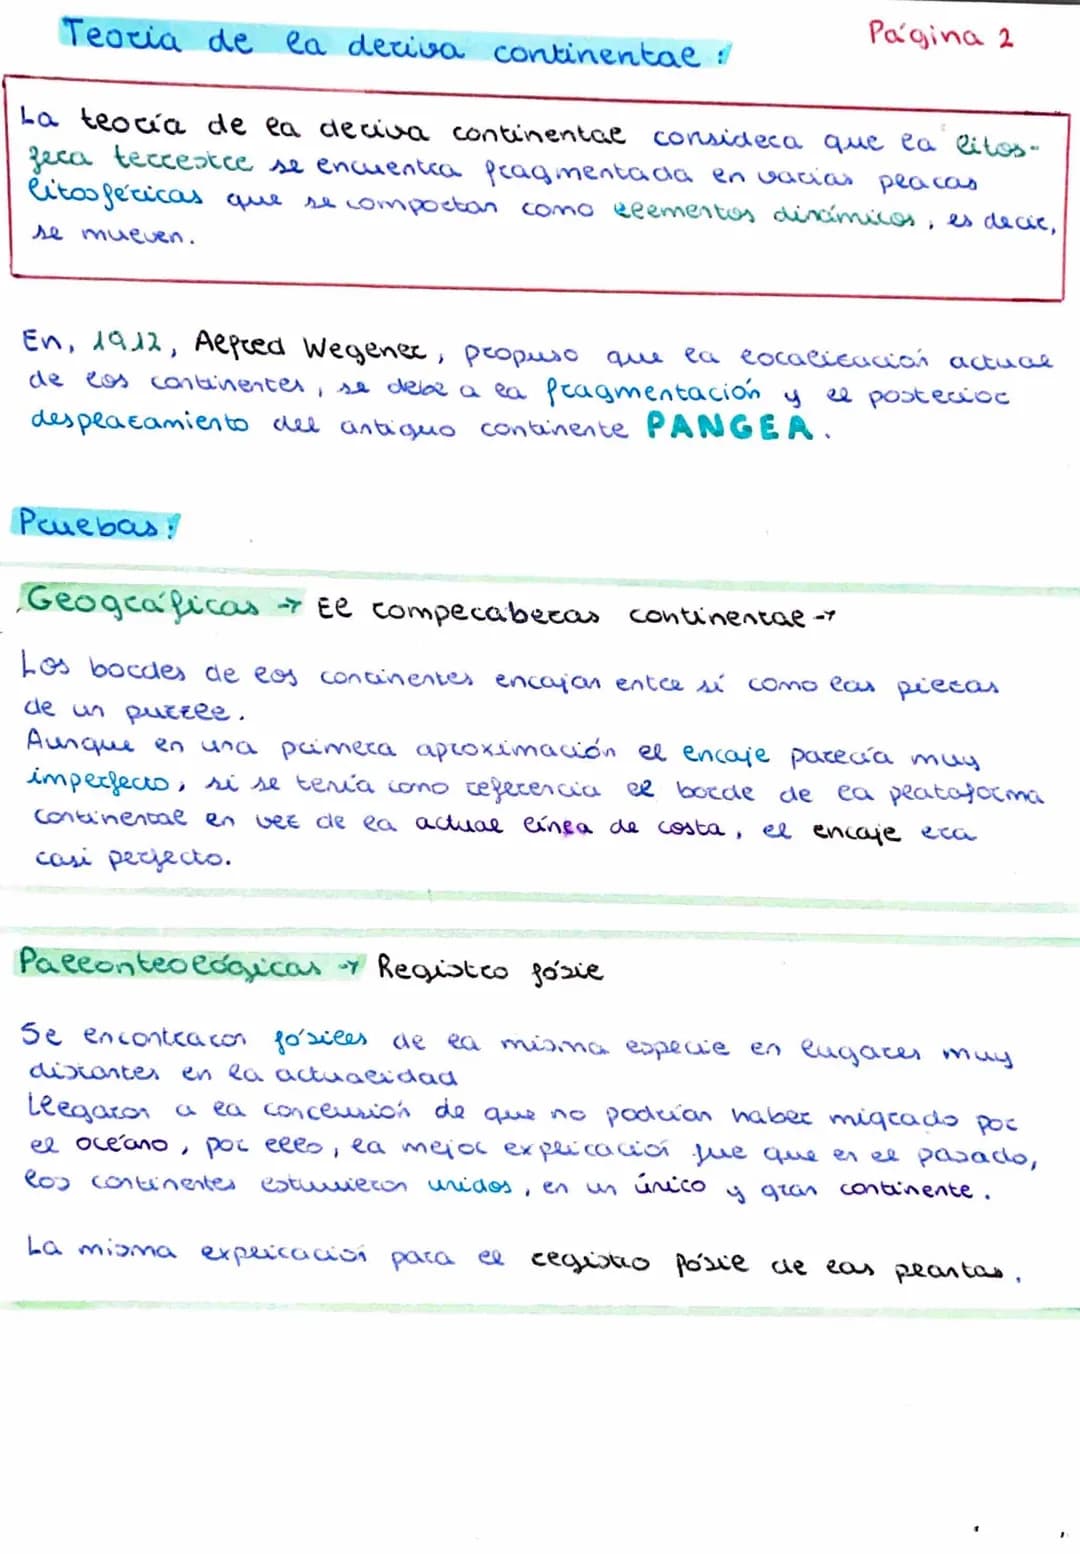 Teoría de la deriva continental:
Página 2
La teoría de la deriva continental considera que la litos-
fera terrestre se encuentra fragmentada en varias placas
litosféricas que se comportan como elementos dinámicos, es decir,
se mueven.
En, 1912, Alfred Wegener, propuso que la localización actual
de los continentes, se debe a la fragmentación y el posterior
desplazamiento del antiguo continente PANGEA.
Pruebas:
Geográficas → El rompecabezas continental →
Los bordes de los continentes encajan entre sí como las piezas
de un puzzle.
Aunque en una primera aproximación el encaje parecía muy
imperfecto, si se tenía como referencia el borde de la plataforma
continental en vez de la actual línea de costa, el encaje era
casi perfecto.
Paleonteológicas → Registro fósil
Se encontraron fósiles de la misma especie en lugares muy
distantes en la actualidad
Llegaron a la conclusión de que no podrían haber migrado por
el océano, por ello, la mejor explicación fue que en el pasado,
los continentes estuvieron unidos, en un único y gran continente.
La misma explicación para el registro fósil de las plantas.